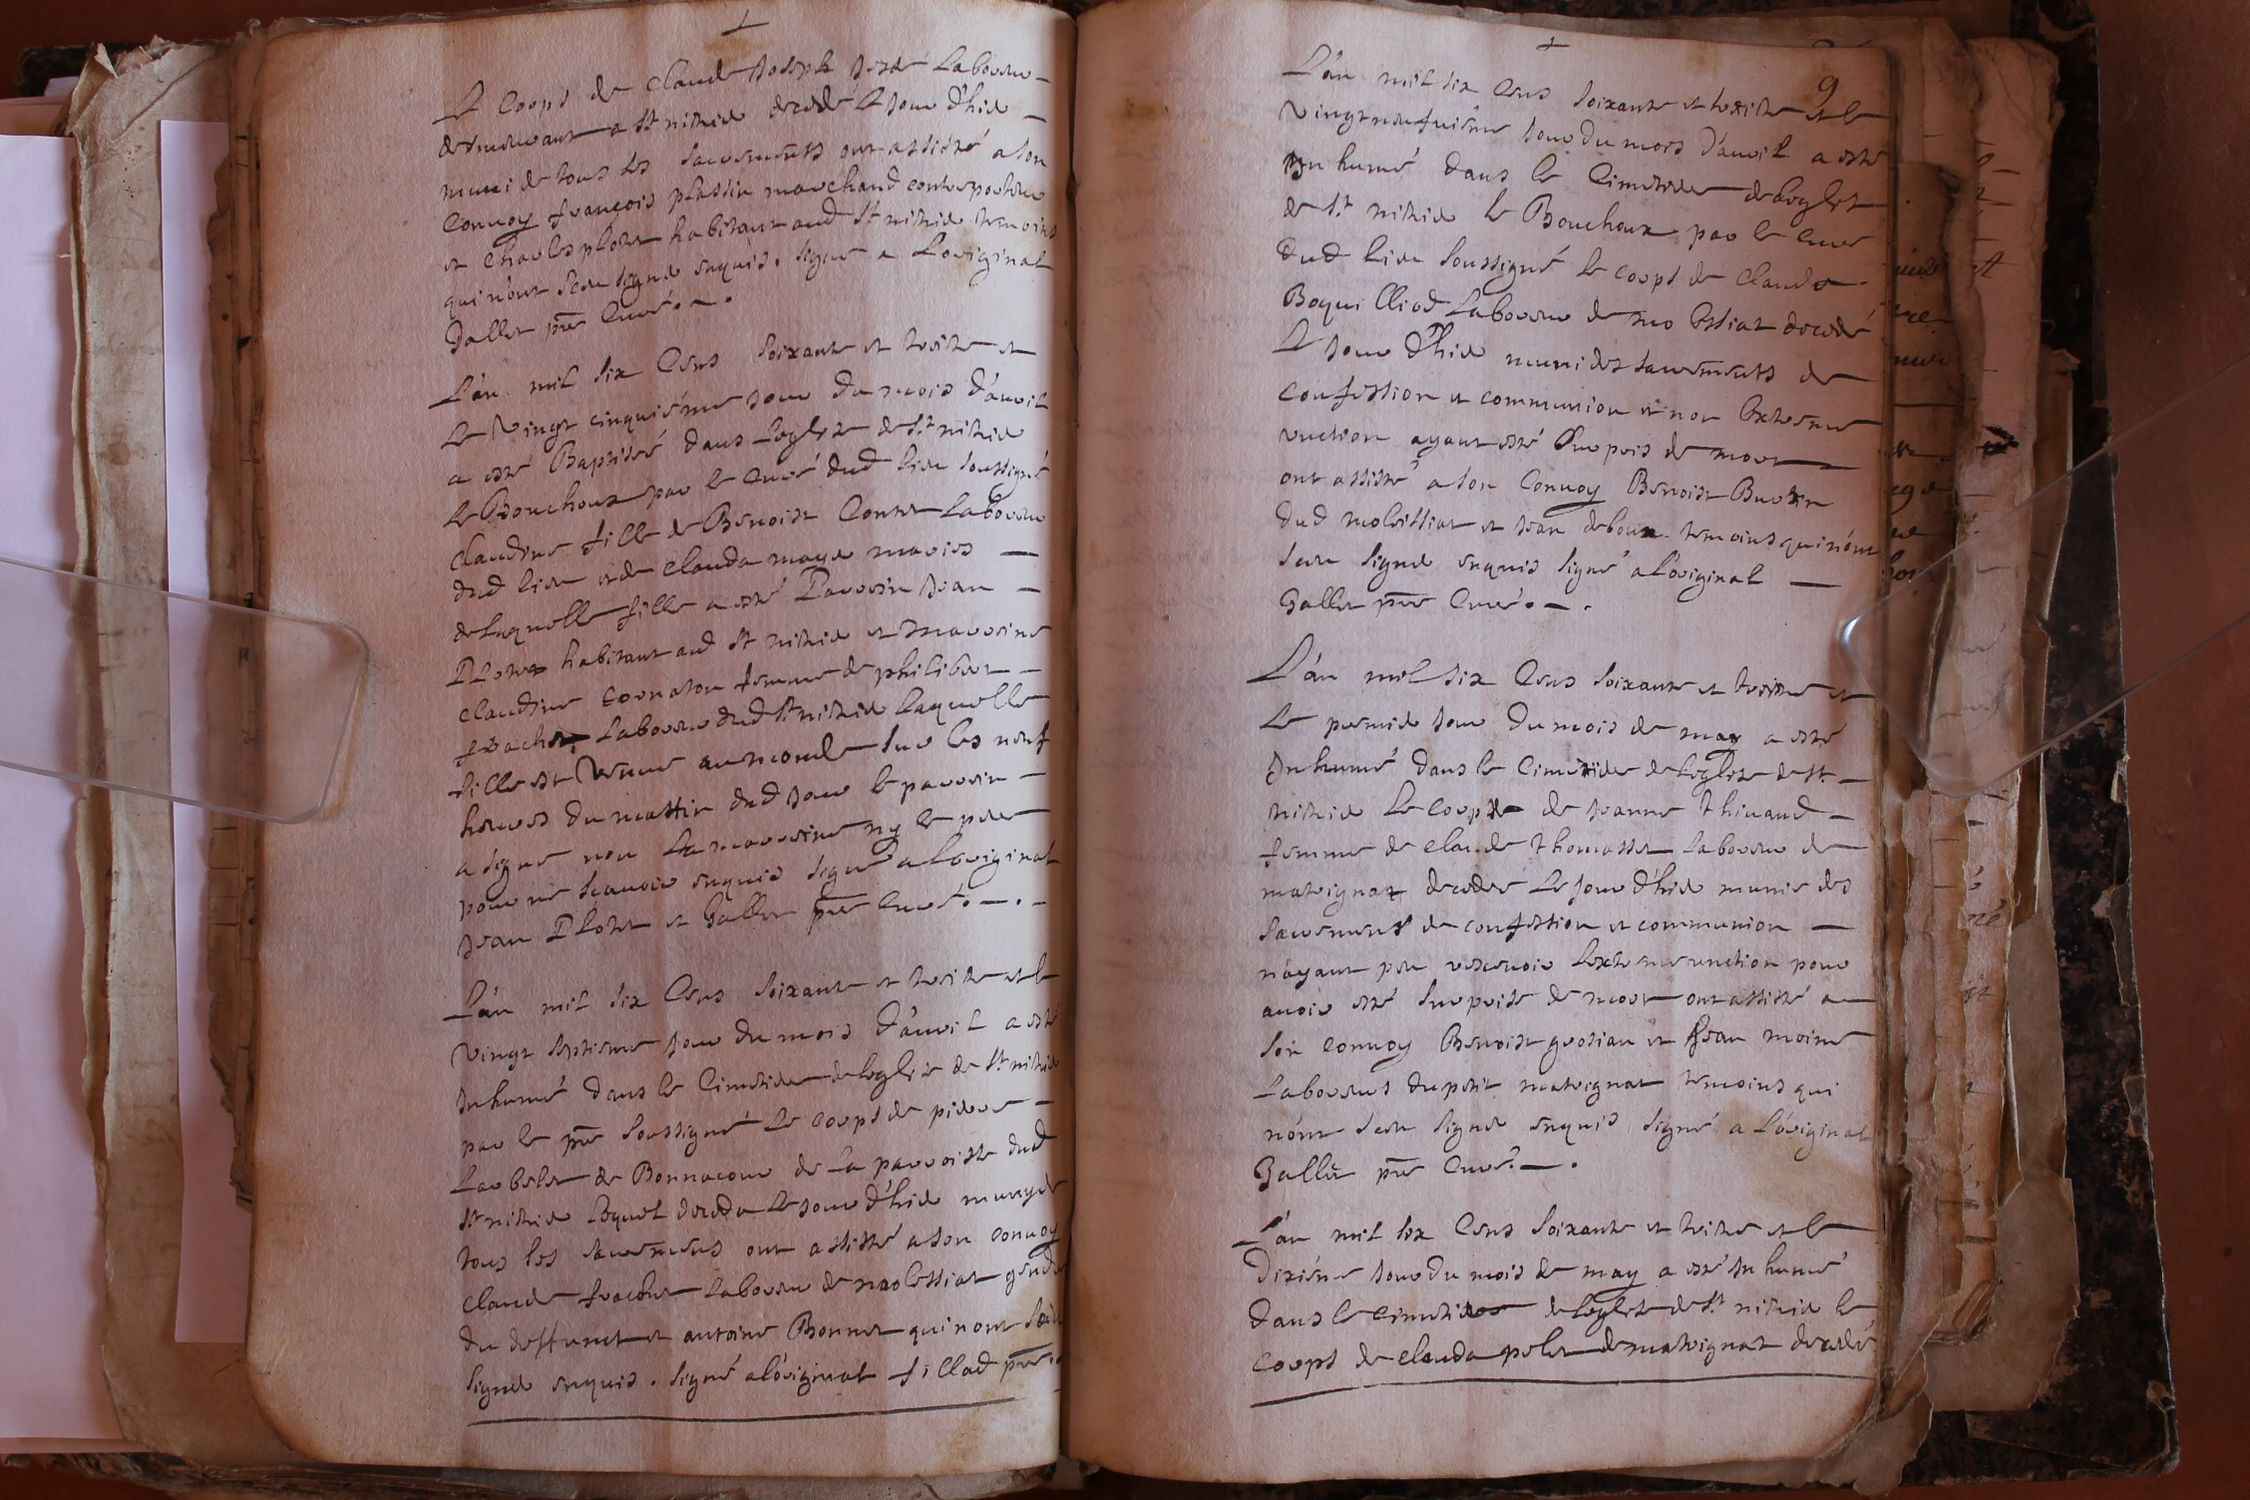 Le Corps de Claude Joseph Laboure
demeurant a St nisier decedé le Jour d'hier
muni de tous les Sacrements ont assisté a son
Convoy françois plassin marchand
et Charles plotet habitant aud St nisier temoins
qui n'ont Sceu signer enquis. signé a L'original
Gallet pre Curé.
L'an mil six Cens soixante et treize et
Le Vingt cinquiéme Jour du mois d'avril
a esté Baptisé dans Leglize de St nisier
Le Bouchoux par le Curé dud lieu soussigné
Claudine fille de Benoist Contet Laboureur
dud lieu et de Clauda maye maries
de laquelle fille a esté Parrein Jean
Plotet habitant aud St nisier et marreine
Claudine Cornaton femme de philibert
frachet Laboureur dud St nisier laquelle
fille est Venue au monde sur les neuf
heures du mattin dud Jour le parrein
a signé non La marreine ny le pere
pour ne sçavoir enquis signé a L'original
Jean Plotet et Gallet pre Curé.
L'an mil six Cens soixante et treize et le
Vingt septieme Jour du mois d'avril a esté
Inhumé dans le Cimetiere de leglise de St nisier
par le pre soussigné Le Corps de pierre
de Bonnacour de La parroisse dud
St nisier lequel deceda Le Jour d'hier muny de
tous les Sacremens ont assisté a son Convoy
Claude frachet Laboureur de molessiat gendre
du deffunct et antoine Bonnet qui n'ont Sceu
signer enquis. signé a l'original fillod pre
9
L'an mil six Cens soixante et treize et le
Vingt neufuiéme Jour du mois d'avril a esté
Inhumé dans le Cimetiere de leglize
de St nisier le Bouchoux par le Curé
dud lieu soussigné le Corps de Claude
Boquilliod Laboureur de molessiat decedé
Le Jour d'hier muni des sacrements de
Confession et communion et non lextreme
unction ayant esté surpris de mort
ont assisté a son Convoy Benoist
dud molessiat et Jean deboux temoins qui n'ont
sceu signer enquis signé a l'original
Gallet pre Curé.
L'an mil six Cens soixante et treize et
Le premier Jour du mois de may a esté
Inhumé dans le Cimetiere de leglize de St
nisier Le Corps de Jeanne Thivaud
femme de Claude Thomasset Laboureur de
matrignat decedée Le Jour d'hier munie des
Sacremens de confession et communion
n'ayant peu recevoir Lextreme unction pour
avoir esté surprise de mort ont assisté a
son Convoy Benoist grosian et Jean moine
Laboureurs du petit matrignat temoins qui
n'ont sceu signer enquis signé a L'original
Gallet pre Curé.
L'an mil six Cens soixante et treize et le
Dixiéme Jour du mois de may a esté Inhumé
dans le Cimetiere de leglize de St nisier le
Corps de Clauda pelet de matrignat decedé